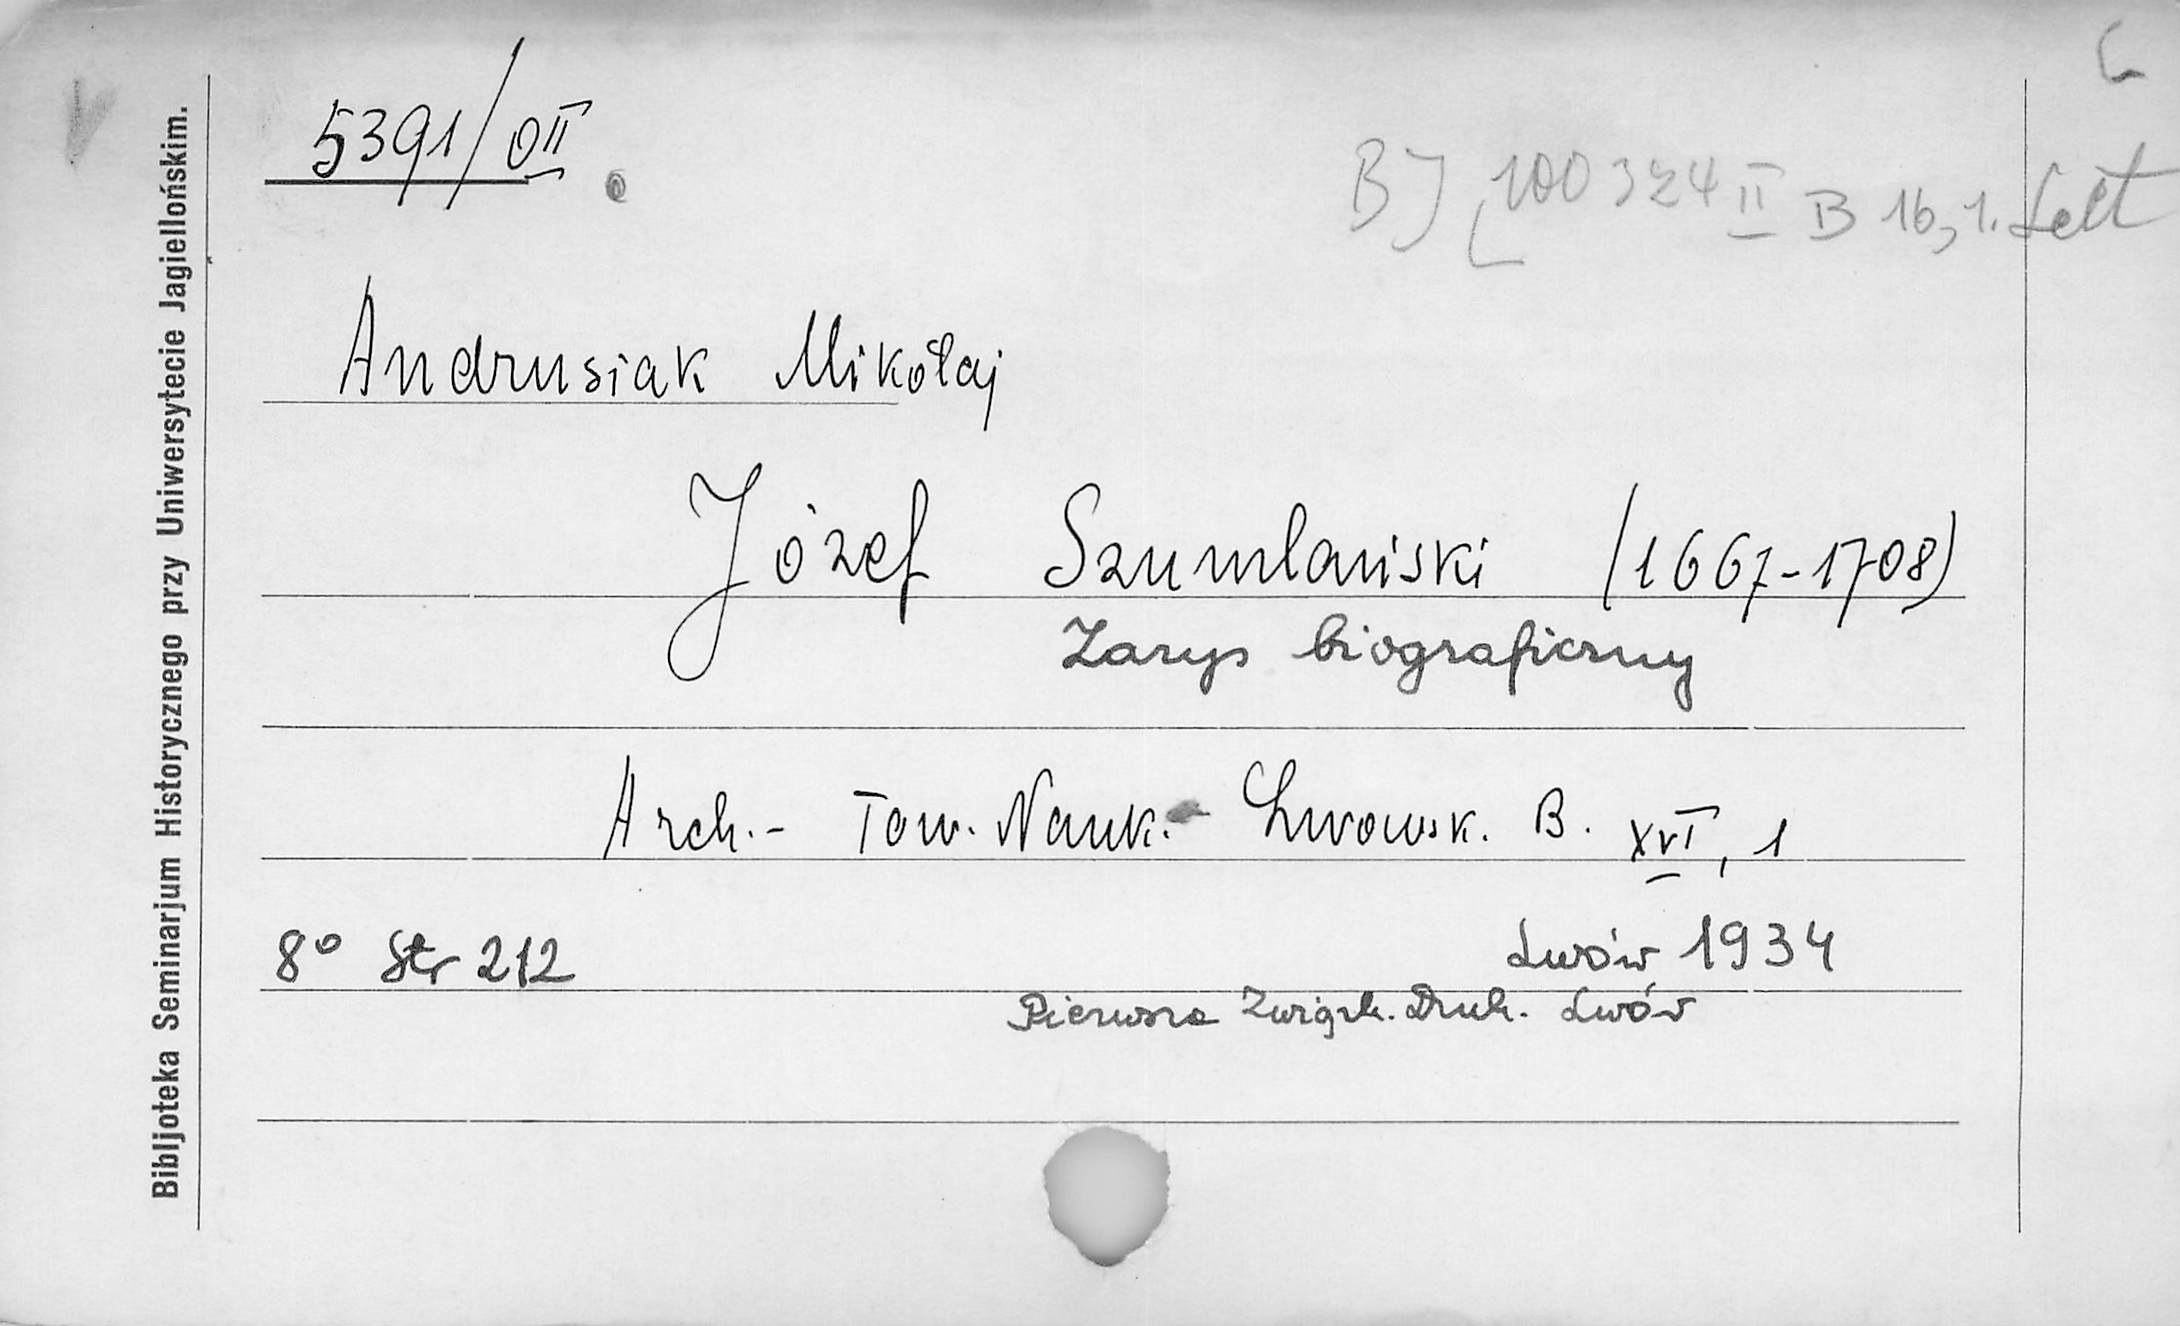 5391/0II
BJ 100324 II B 16,1. Lett
Bibljoteka Seminarjum Historycznego przy Uniwersytecie Jagiellońskim.
Andrusiak Mikołaj
Józef Szumlański (1667-1708)
Zarys biograficzny
Arch.- Tow. Nauk.- Lwowsk. B. XVI, 1
Lwów 1934
8° Str 212
Pierwsza Związk. Druk. Lwów